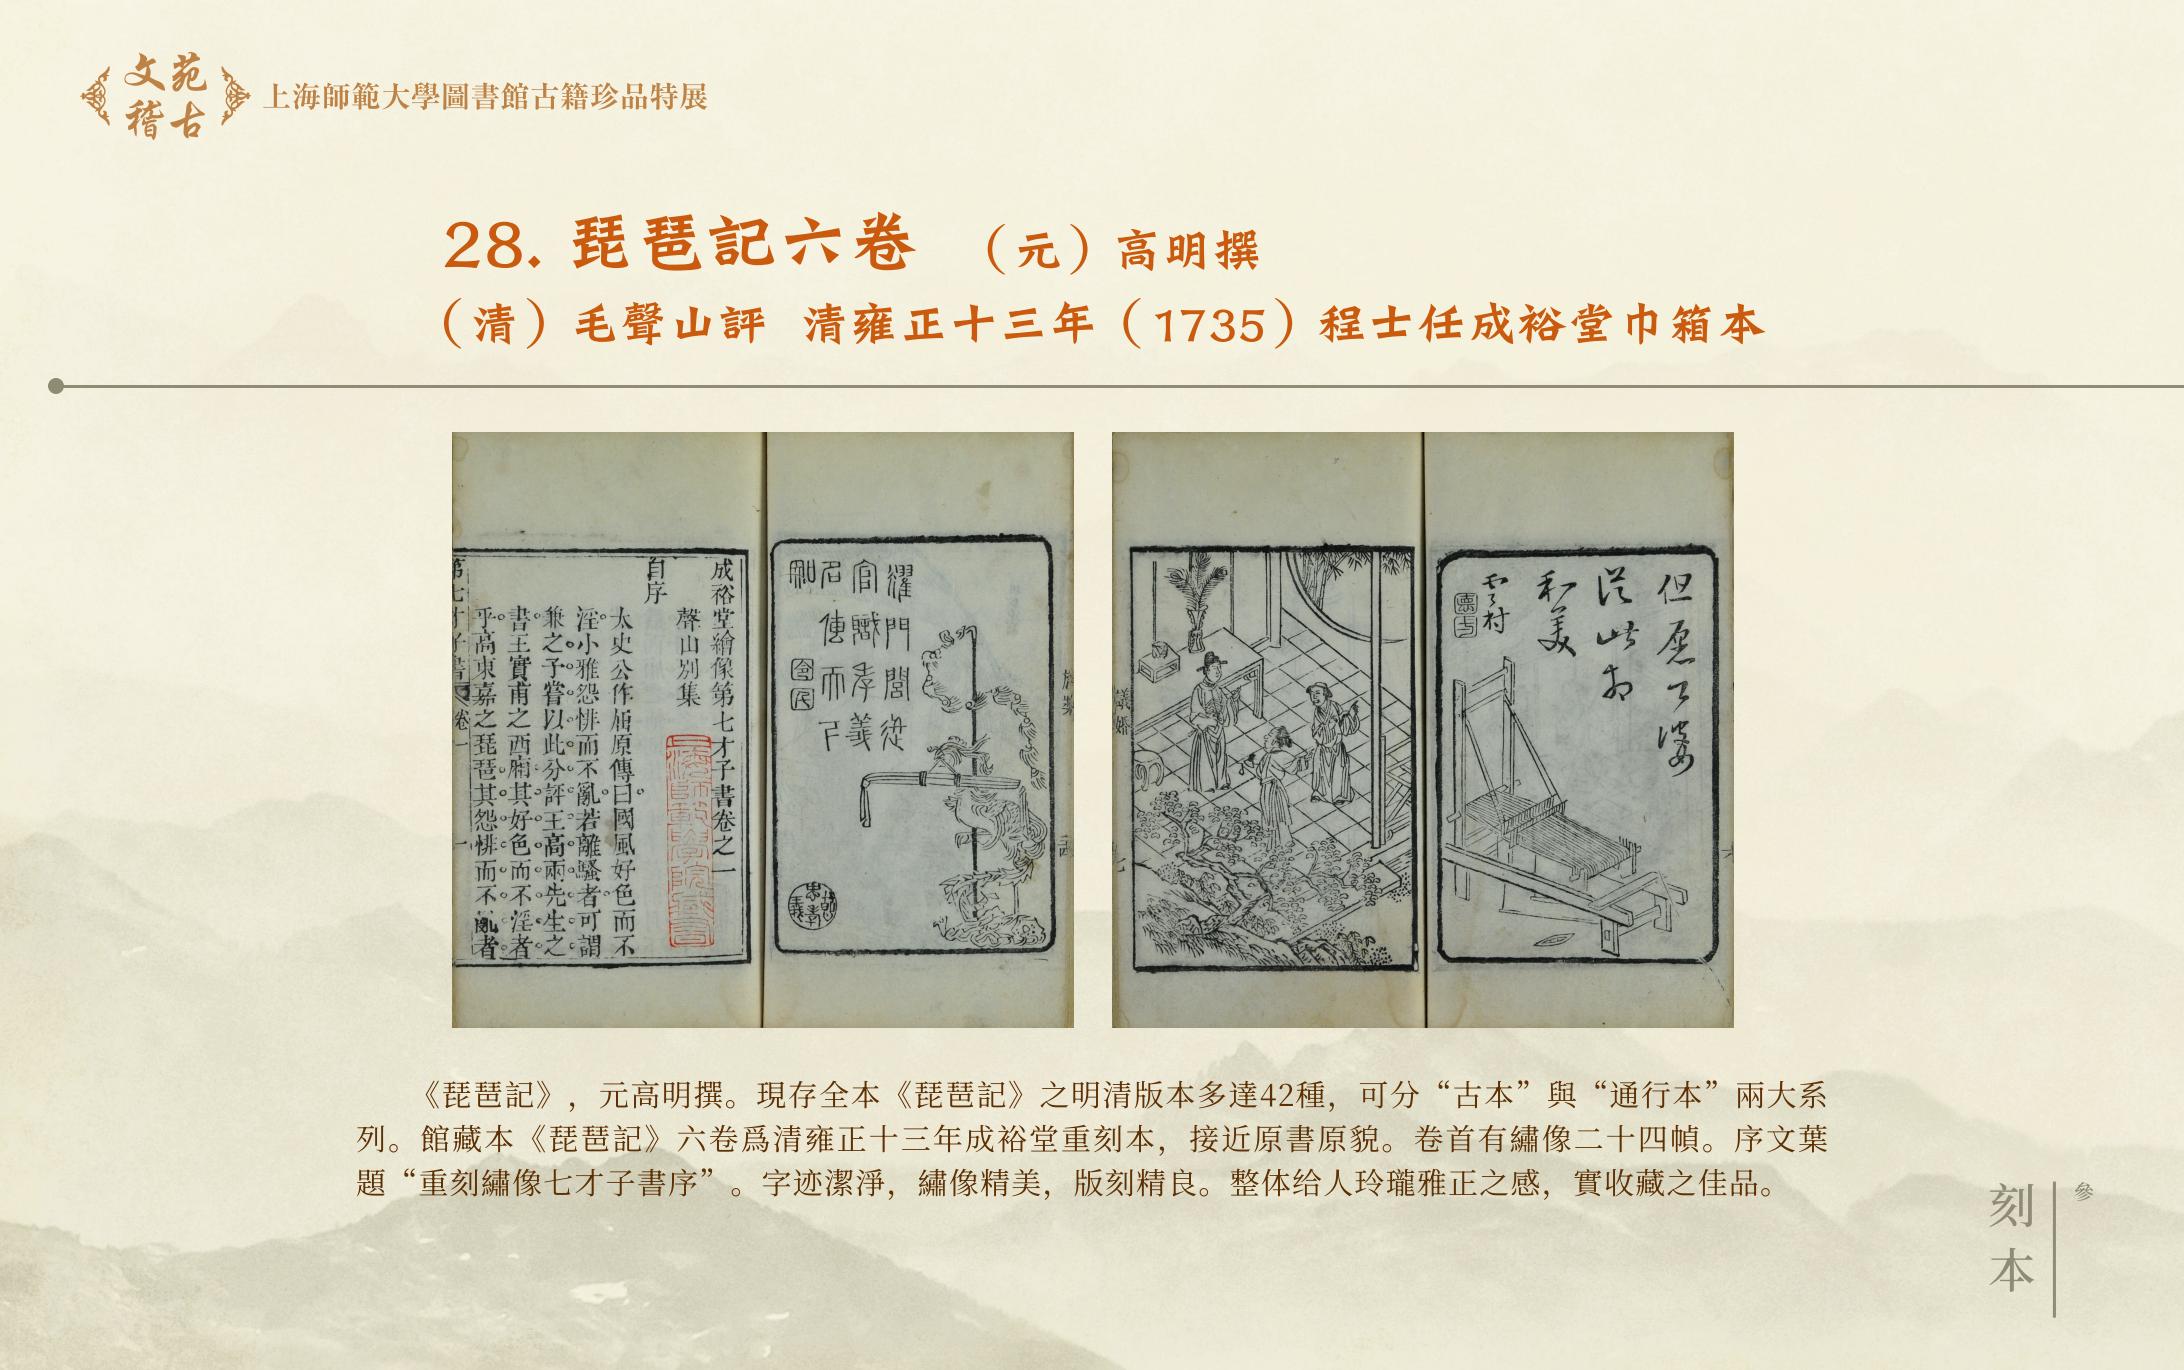 文苑
稽古
上海師範大學圖書館古籍珍品特展
28. 琵琶記六卷 （元）高明撰
（清）毛聲山評 清雍正十三年（1735）程士任成裕堂巾箱本
成裕堂繪像第七才子書卷之一
聲山別集
自序
太史公作屈原傳曰國風好色而不
淫小雅怨悱而不亂若離騷者可謂
兼之予嘗以此分評王高兩先生之
書王實甫之西廂其好色而不淫者
乎高東嘉之琵琶其怨悱而不亂者
第七才子書 卷一 一
但愿公婆
從此相
和美
雲村
議婚
《琵琶記》，元高明撰。現存全本《琵琶記》之明清版本多達42種，可分“古本”與“通行本”兩大系
列。館藏本《琵琶記》六卷爲清雍正十三年成裕堂重刻本，接近原書原貌。卷首有繡像二十四幀。序文葉
題“重刻繡像七才子書序”。字迹潔淨，繡像精美，版刻精良。整体给人玲瓏雅正之感，實收藏之佳品。
刻本
參